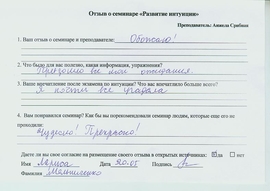 Отзыв о семинаре «Развитие интуиции»
Преподаватель: Анжела Срибная
1. Ваш отзыв о семинаре и преподавателе: Обожаю!
2. Что было для вас полезно, какая информация, упражнения?
Превзошло все мои ожидания.
3. Ваше впечатление после экзамена по интуиции? Что вас впечатлило больше всего?
Я почти все угадала
4. Вам понравился семинар? Как бы вы порекомендовали семинар людям, которые еще его не
проходили:
Чудесно! Прекрасно!
Даете ли вы свое согласие на размещение своего отзыва в открытых источниках: да нет
Имя Лариса Дата 20.05 Подпись
Фамилия Мельниченко